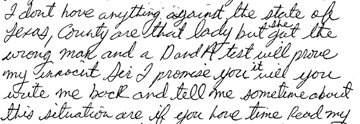 I dont have anything against the state of
Texas, County are that lady but she got the
wrong man and a D and A test will prove
my innocint Sir I promise you it will you
write me back and tell me sometime about
this situation are if you have time Read my